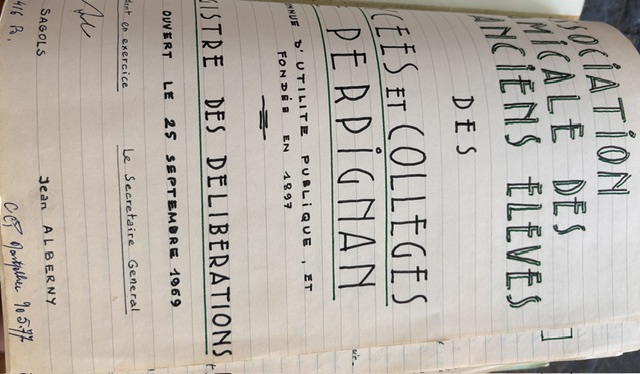 OCIATION
MICALE DES
ANCIENS ELEVES
DES
CEES ET COLLEGES
PERPIGNAN
NNUE D'UTILITE PUBLIQUE, ET
FONDÉE EN 1897
ISTRE DES DELIBERATIONS
OUVERT LE 25 SEPTEMBRE 1969
ent en exercice Le Secretaire General
SAGOLS Jean ALBERNY